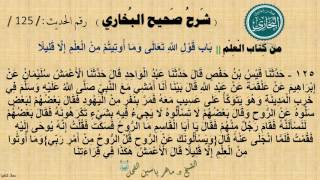 البخاري
شَرحُ صَحِيحِ البُخاري
رقم الحديث: / 125 /
من كتاب العلم || باب قول الله تعالى وما أوتيتم من العلم إلا قليلا
١٢٥ - حدثنا قيس بن حفص قال حدثنا عبد الواحد قال حدثنا الأعمش سليمان عن
إبراهيم عن علقمة عن عبد الله قال بينا أنا أمشي مع النبي صلى الله عليه وسلم في
خرب المدينة وهو يتوكأ على عسيب معه فمر بنفر من اليهود فقال بعضهم لبعض
سلوه عن الروح وقال بعضهم لا تسألوه لا يجيء فيه بشيء تكرهونه فقال بعضهم
لنسألنه فقام رجل منهم فقال يا أبا القاسم ما الروح فسكت فقلت إنه يوحى إليه
فقمت فلما انجلى عنه قال (ويسألونك عن الروح قل الروح من أمر ربي) وما أوتوا
من العلم إلا قليلا قال الأعمش هكذا في قراءتنا
ماهر ياسين الفحل